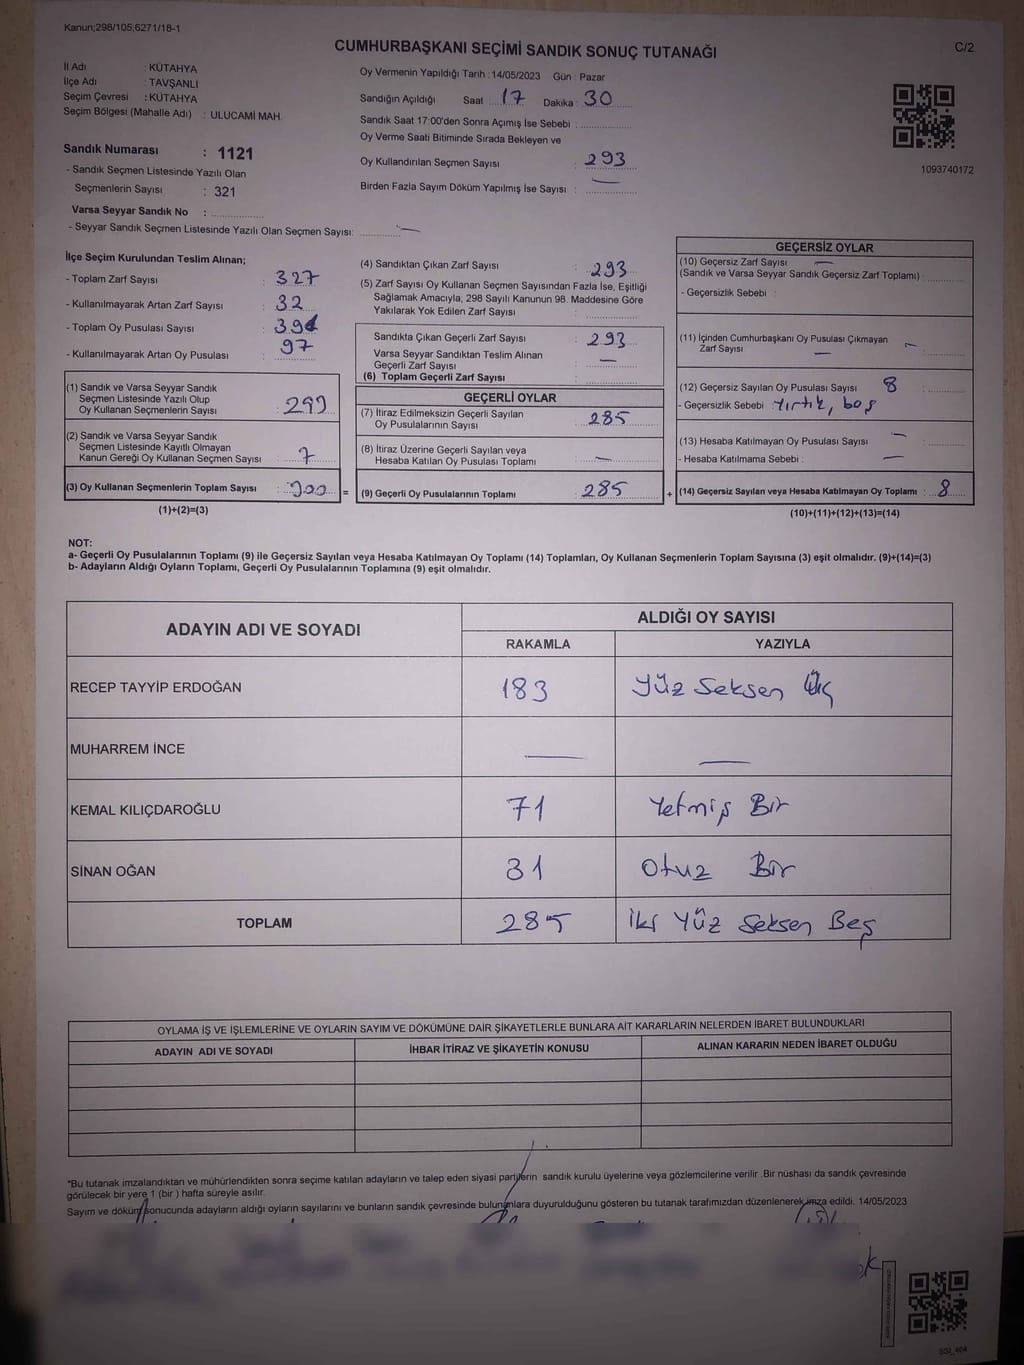 Kanun;298/105;6271/18-1
C/2
CUMHURBAŞKANI SEÇİMİ SANDIK SONUÇ TUTANAĞI
İl Adı : KÜTAHYA
İlçe Adı : TAVŞANLI
Seçim Çevresi : KÜTAHYA
Seçim Bölgesi (Mahalle Adı) : ULUCAMİ MAH.
Sandık Numarası : 1121
- Sandık Seçmen Listesinde Yazılı Olan
Seçmenlerin Sayısı : 321
Varsa Seyyar Sandık No :
- Seyyar Sandık Seçmen Listesinde Yazılı Olan Seçmen Sayısı: —
Oy Vermenin Yapıldığı Tarih :14/05/2023 Gün : Pazar
Sandığın Açıldığı Saat 17 Dakika 30
Sandık Saat 17:00'den Sonra Açımış İse Sebebi :
Oy Verme Saati Bitiminde Sırada Bekleyen ve
Oy Kullandırılan Seçmen Sayısı : 293
Birden Fazla Sayım Döküm Yapılmış İse Sayısı : —
1093740172
İlçe Seçim Kurulundan Teslim Alınan;
- Toplam Zarf Sayısı : 327
- Kullanılmayarak Artan Zarf Sayısı : 32
- Toplam Oy Pusulası Sayısı :
- Kullanılmayarak Artan Oy Pusulası : 97
(1) Sandık ve Varsa Seyyar Sandık
Seçmen Listesinde Yazılı Olup
Oy Kullanan Seçmenlerin Sayısı :
(2) Sandık ve Varsa Seyyar Sandık
Seçmen Listesinde Kayıtlı Olmayan
Kanun Gereği Oy Kullanan Seçmen Sayısı : 7
(3) Oy Kullanan Seçmenlerin Toplam Sayısı : =
(1)+(2)=(3)
(4) Sandıktan Çıkan Zarf Sayısı : 293
(5) Zarf Sayısı Oy Kullanan Seçmen Sayısından Fazla İse, Eşitliği
Sağlamak Amacıyla, 298 Sayılı Kanunun 98. Maddesine Göre
Yakılarak Yok Edilen Zarf Sayısı :
Sandıkta Çıkan Geçerli Zarf Sayısı : 293
Varsa Seyyar Sandıktan Teslim Alınan
Geçerli Zarf Sayısı : —
(6) Toplam Geçerli Zarf Sayısı :
GEÇERLİ OYLAR
(7) İtiraz Edilmeksizin Geçerli Sayılan
Oy Pusulalarının Sayısı : 285
(8) İtiraz Üzerine Geçerli Sayılan veya
Hesaba Katılan Oy Pusulası Toplamı : —
(9) Geçerli Oy Pusulalarının Toplamı : 285 +
GEÇERSİZ OYLAR
(10) Geçersiz Zarf Sayısı —
(Sandık ve Varsa Seyyar Sandık Geçersiz Zarf Toplamı) :
- Geçersizlik Sebebi :
(11) İçinden Cumhurbaşkanı Oy Pusulası Çıkmayan
Zarf Sayısı — :
(12) Geçersiz Sayılan Oy Pusulası Sayısı 8
- Geçersizlik Sebebi : Yırtık, boş
(13) Hesaba Katılmayan Oy Pusulası Sayısı —
- Hesaba Katılmama Sebebi : —
(14) Geçersiz Sayılan veya Hesaba Katılmayan Oy Toplamı : 8
(10)+(11)+(12)+(13)=(14)
NOT:
a- Geçerli Oy Pusulalarının Toplamı (9) ile Geçersiz Sayılan veya Hesaba Katılmayan Oy Toplamı (14) Toplamları, Oy Kullanan Seçmenlerin Toplam Sayısına (3) eşit olmalıdır. (9)+(14)=(3)
b- Adayların Aldığı Oyların Toplamı, Geçerli Oy Pusulalarının Toplamına (9) eşit olmalıdır.
ADAYIN ADI VE SOYADI
ALDIĞI OY SAYISI
RAKAMLA YAZIYLA
RECEP TAYYİP ERDOĞAN 183 Yüz Seksen Üç
MUHARREM İNCE — —
KEMAL KILIÇDAROĞLU 71 Yetmiş Bir
SİNAN OĞAN 31 Otuz Bir
TOPLAM 285 İki Yüz Seksen Beş
OYLAMA İŞ VE İŞLEMLERİNE VE OYLARIN SAYIM VE DÖKÜMÜNE DAİR ŞİKAYETLERLE BUNLARA AİT KARARLARIN NELERDEN İBARET BULUNDUKLARI
ADAYIN ADI VE SOYADI İHBAR İTİRAZ VE ŞİKAYETİN KONUSU ALINAN KARARIN NEDEN İBARET OLDUĞU
*Bu tutanak imzalandıktan ve mühürlendikten sonra seçime katılan adayların ve talep eden siyasi partilerin sandık kurulu üyelerine veya gözlemcilerine verilir .Bir nüshası da sandık çevresinde
görülecek bir yere 1 (bir ) hafta süreyle asılır.
Sayım ve döküm sonucunda adayların aldığı oyların sayılarını ve bunların sandık çevresinde bulunanlara duyurulduğunu gösteren bu tutanak tarafımızdan düzenlenerek imza edildi. 14/05/2023